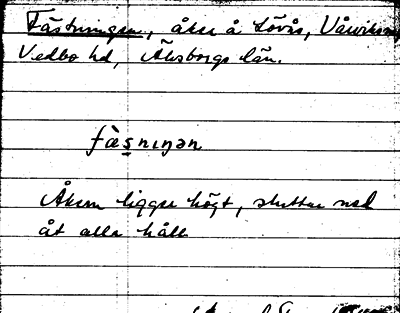 Fästningen, åker å Lövås, Vårviks sn,
Vedbo hd, Älvsborgs län.
fæ̀s̱nıŋən
Åkern ligger högt, sluttar ned
åt alla håll